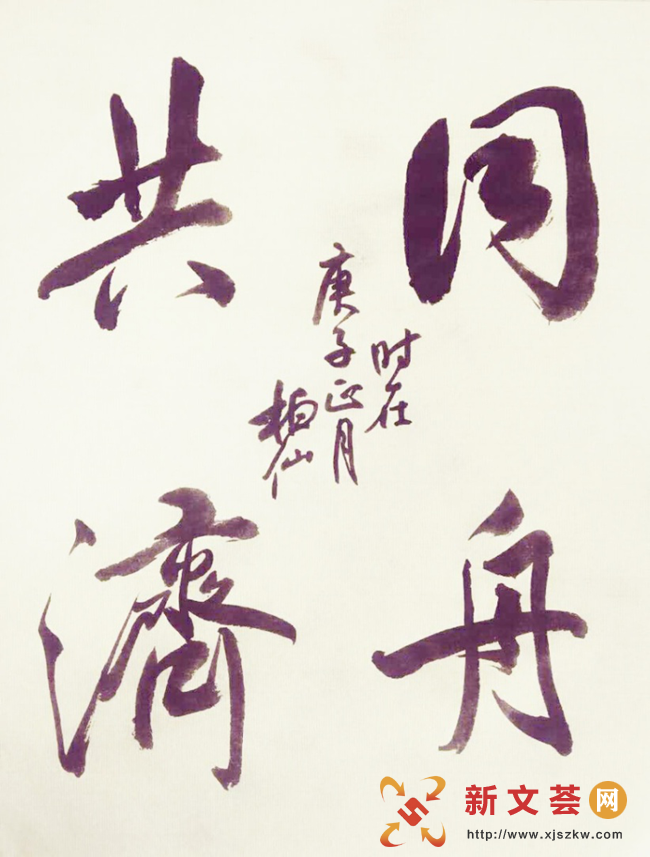 同舟
共濟
时在
庚子正月
柏仙
新文荟网
http://www.xjszkw.com